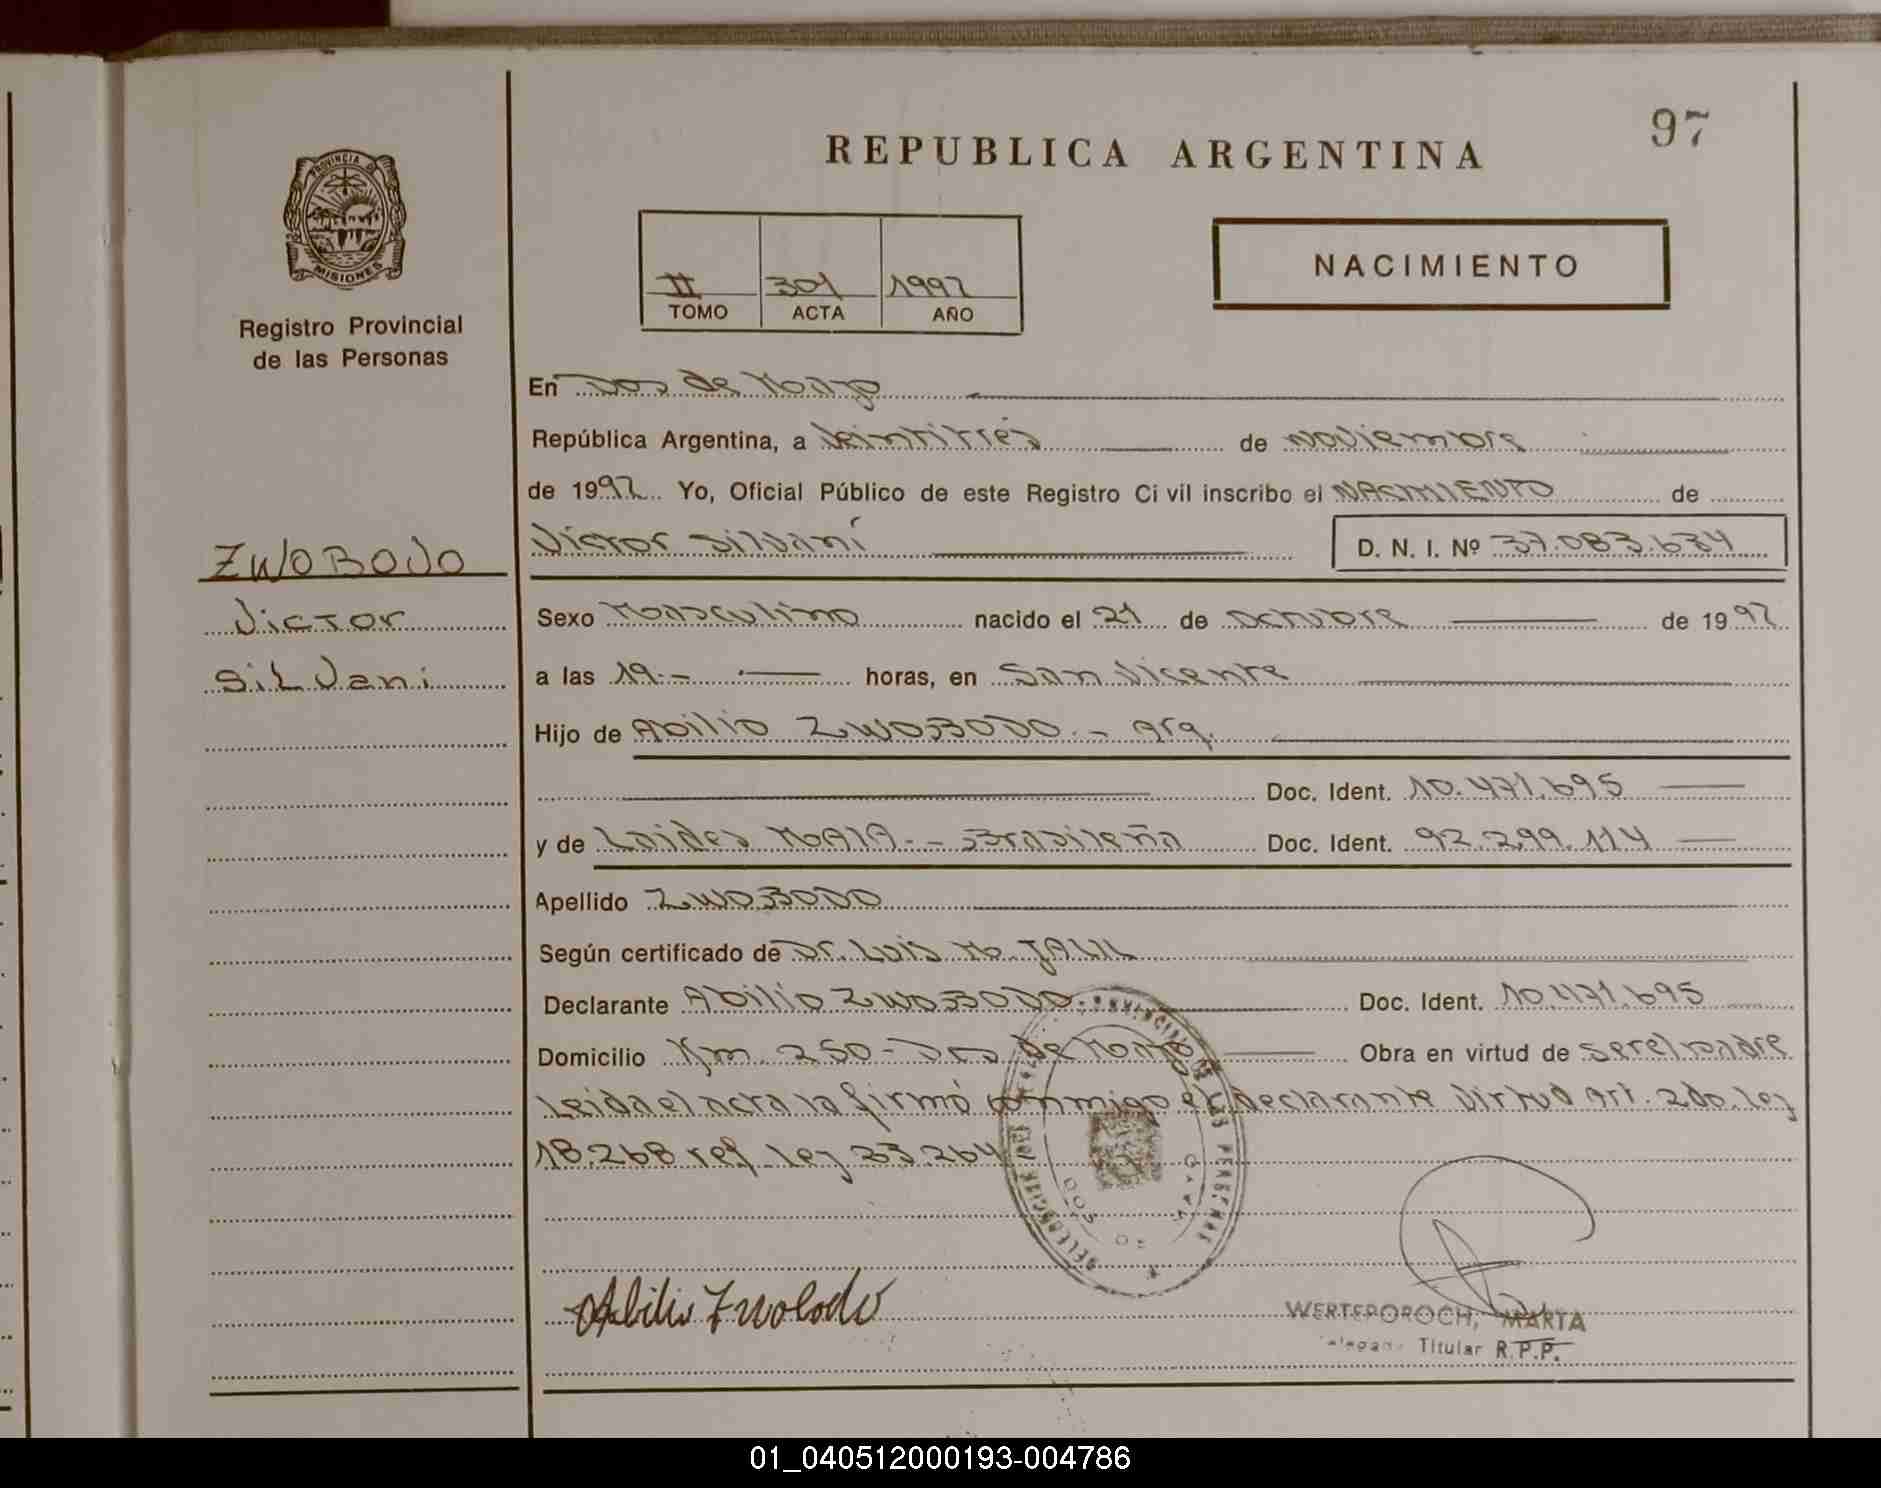 97
REPUBLICA ARGENTINA
PROVINCIA DE
MISIONES
Registro Provincial
de las Personas
II 301 1992
TOMO ACTA AÑO
NACIMIENTO
En Dos de Mayo
República Argentina, a Veintitrés de Noviembre
de 1992. Yo, Oficial Público de este Registro Ci vil inscribo el NACIMIENTO de
ZWOBODO
Victor Silvani
D. N. I. Nº 37.083.634
Victor
Silvani
Sexo Masculino nacido el 21 de Octubre de 1992
a las 19.- horas, en San Vicente
Hijo de Abilio ZWOBODO.- Arg.
Doc. Ident. 10.471.695
y de Laides MAIA.- Brasileña Doc. Ident. 92.299.114
Apellido ZWOBODO
Según certificado de Dr. Luis M. JALIL
Declarante Abilio ZWOBODO.- Doc. Ident. 10.471.695
Domicilio Km. 250 - Dos de Mayo Obra en virtud de ser el padre
Leida el acta la firmó conmigo el declarante Virtud Art. 2do. Ley
18.268 ref. Ley 23.264
PROVINCIAL DE LAS PERSONAS
DOS DE MAYO
Abilio Zwobodo
WERTEPOROCH, MARTA
Titular R.P.P.
01_040512000193-004786